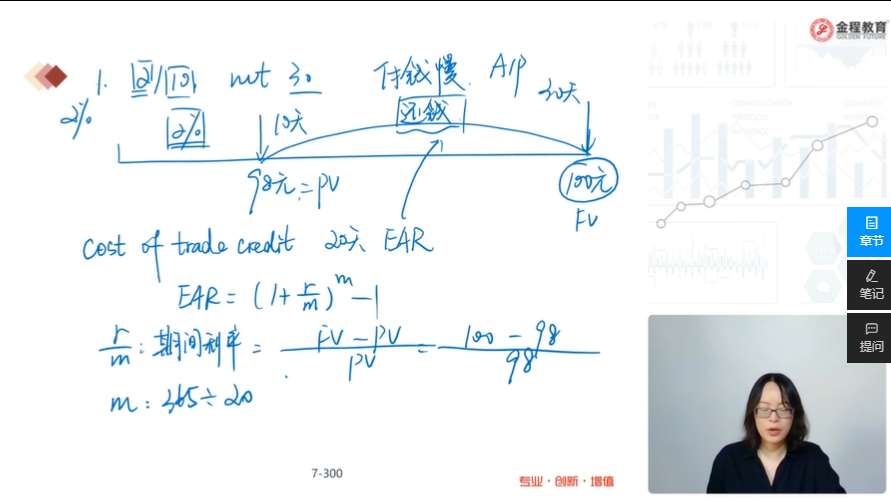 金程教育
GOLDEN FUTURE
1. |2|/|10| net 30 付钱慢. A/P
2% |2%| 10天 还钱 30天
98元=PV 100元
FV
cost of trade credit 20天 EAR
EAR = (1+r/m)^m -1
r/m : 期间利率 = FV-PV/PV = 100-98/98
m : 365÷20
7-300
专业·创新·增值
章节
笔记
提问